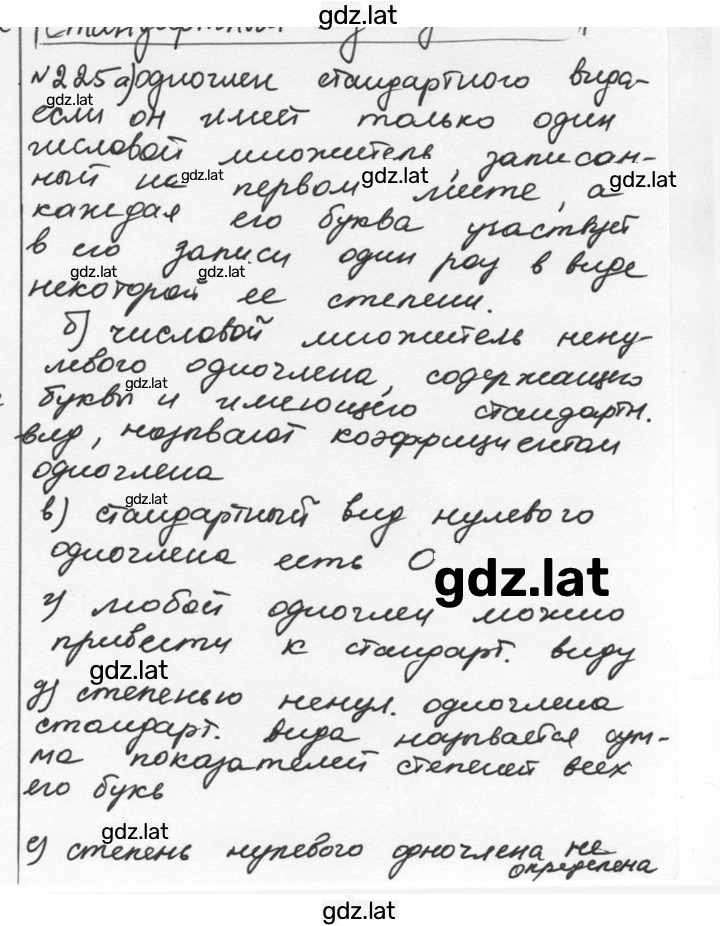 gdz.lat
№225 а) одночлен стандартного вида-
gdz.lat
если он имеет только один
числовой множитель, записан-
ный на gdz.lat первом gdz.lat месте, а gdz.lat
каждая его буква участвует
в его записи один раз в виде
gdz.lat gdz.lat
некоторой ее степени.
б) числовой множитель нену-
левого одночлена, содержащего
gdz.lat
буквы и имеющего стандартн.
вид, называют коэффициентом
одночлена
gdz.lat
в) стандартный вид нулевого
одночлена есть 0
gdz.lat
г) любой одночлен можно
привести к стандарт. виду
gdz.lat
д) степенью ненул. одночлена
стандарт. вида называется сум-
ма показателей степеней всех
его букв
gdz.lat
е) степень нулевого одночлена не
определена
gdz.lat